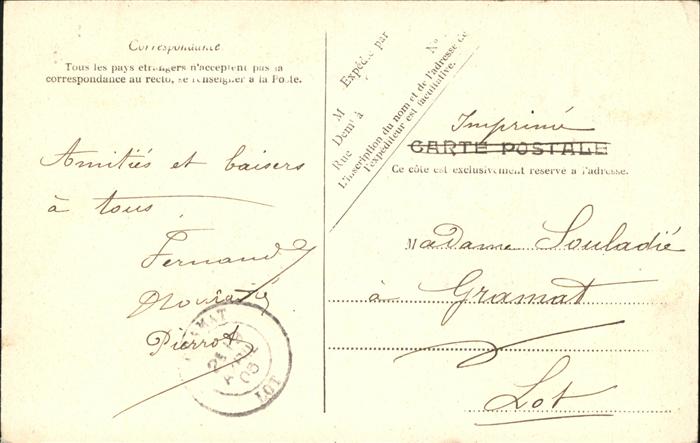 Correspondance
Tous les pays étrangers n'acceptent pas la
correspondance au recto, se renseigner à la Poste.
Amitiés et baisers
à tous
Fernand
Pierrot
GRAMAT
LOT
Expédiée par
M
N°
Demt à
Rue
L'inscription du nom et de l'adresse de
l'expéditeur est facultative.
Imprimé
CARTE POSTALE
Ce côté est exclusivement réservé à l'adresse.
Madame Souladié
à Gramat
Lot